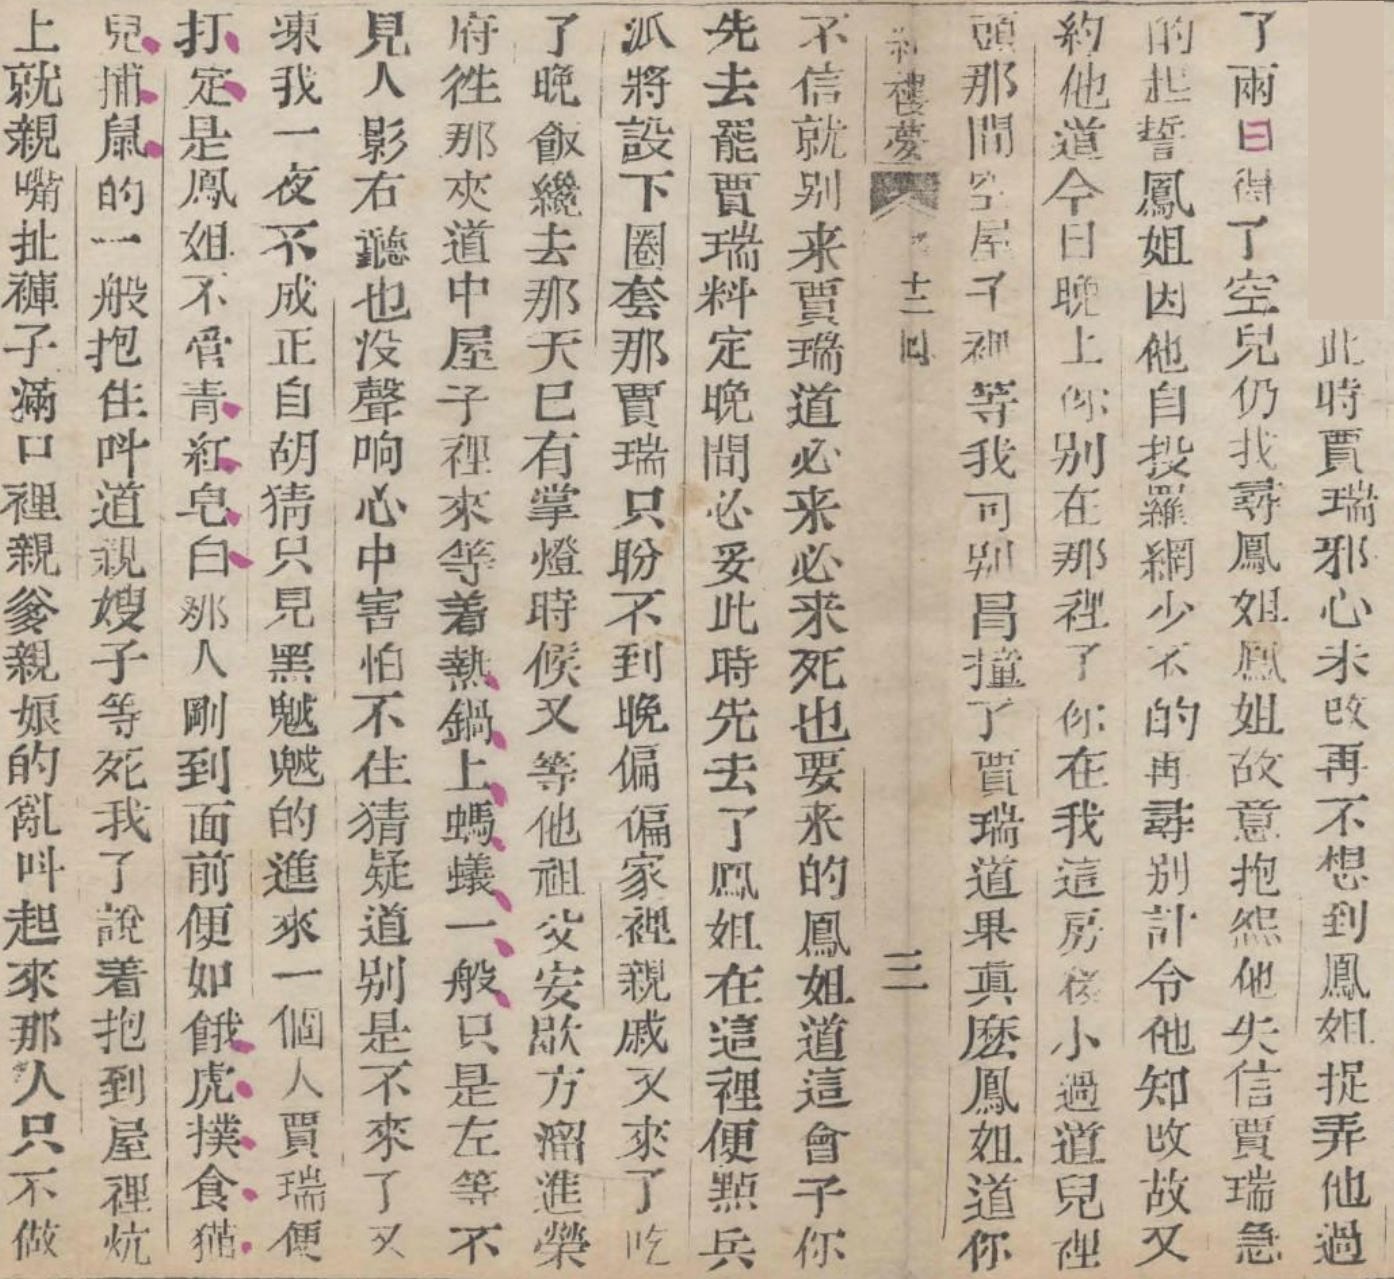 此時賈瑞邪心未改再不想到鳳姐捉弄他過
了兩日得了空兒仍找尋鳳姐鳳姐故意抱怨他失信賈瑞急
的起誓鳳姐因他自投羅網少不的再尋别計令他知改故又
約他道今日晚上你别在那裡了你在我這房後小過道兒裡
頭那間空屋子裡等我可别冒撞了賈瑞道果真麽鳳姐道你
紅樓夢 十二回 三
不信就别来賈瑞道必来必来死也要来的鳳姐道這會子你
先去罷賈瑞料定晚間必妥此時先去了鳳姐在這裡便㸃兵
派將設下圈套那賈瑞只盼不到晚偏偏家裡親戚又來了吃
了晚飯纔去那天已有掌燈時候又等他祖父安歇方溜進榮
府徃那夾道中屋子裡來等着熱鍋上螞蟻一般只是左等不
見人影右聽也没聲响心中害怕不住猜疑道别是不來了又
凍我一夜不成正自胡猜只見黑魆魆的進來一個人賈瑞便
打定是鳳姐不管青紅皂白那人剛到面前便如餓虎撲食猫
兒捕鼠的一般抱住呌道親嫂子等死我了說着抱到屋裡炕
上就親嘴扯褲子滿口裡親爹親娘的亂呌起來那人只不做